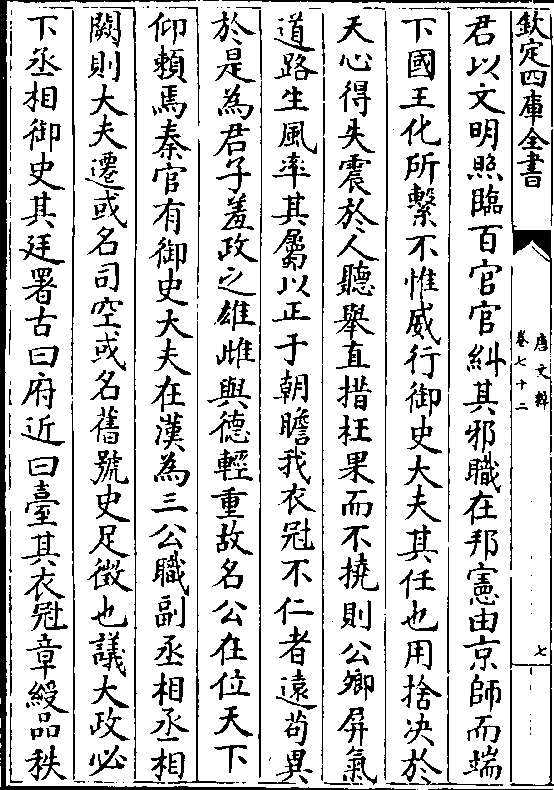 欽定四庫全書
唐文粹
卷七十二
七
君以文明照臨百官官糾其邪職在邦憲由京師而端
下國王化所繫不惟威行御史大夫其任也用捨決於
天心得失震於人聽舉直措枉果而不撓則公卿屏氣
道路生風率其屬以正于朝瞻我衣冠不仁者遠苟異
於是為君子羞政之雄雌與德輕重故名公在位天下
仰賴焉秦官有御史大夫在漢為三公職副丞相丞相
闕則大夫遷或名司空或名舊號史足徵也議大政必
下丞相御史其廷署古曰府近曰臺其衣冠章綬品秩